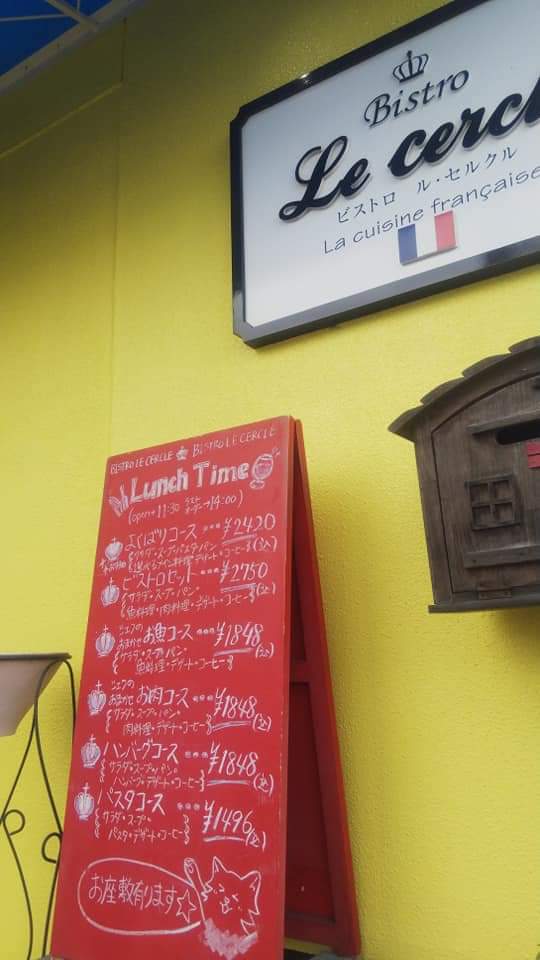 Bistro
Le cercl
ビストロ ル・セルクル
La cuisine française
BISTRO LE CERCLE BISTRO LE CERCLE
Lunch Time
(open→11:30 ラスト オーダー→14:00)
よくばりコース ・・・ ¥2420
サラダ・スープ・パスタ・パン (込)
メイン料理・デザート・コーヒー
ビストロセット ・・・ ¥2750
サラダ・スープ・パン・ (込)
魚料理・肉料理・デザート・コーヒー
シェフの おまかせ お魚コース ・・・ ¥1848
サラダ・スープ・パン (込)
魚料理・デザート・コーヒー
シェフの おまかせ お肉コース ・・・ ¥1848
サラダ・スープ・パン・ (込)
肉料理・デザート・コーヒー
ハンバーグコース ・・・ ¥1848
サラダ・スープ・パン・ (込)
ハンバーグ・デザート・コーヒー
パスタコース ・・・ ¥1496
サラダ・スープ・ (込)
パスタ・デザート・コーヒー
お座敷有ります☆